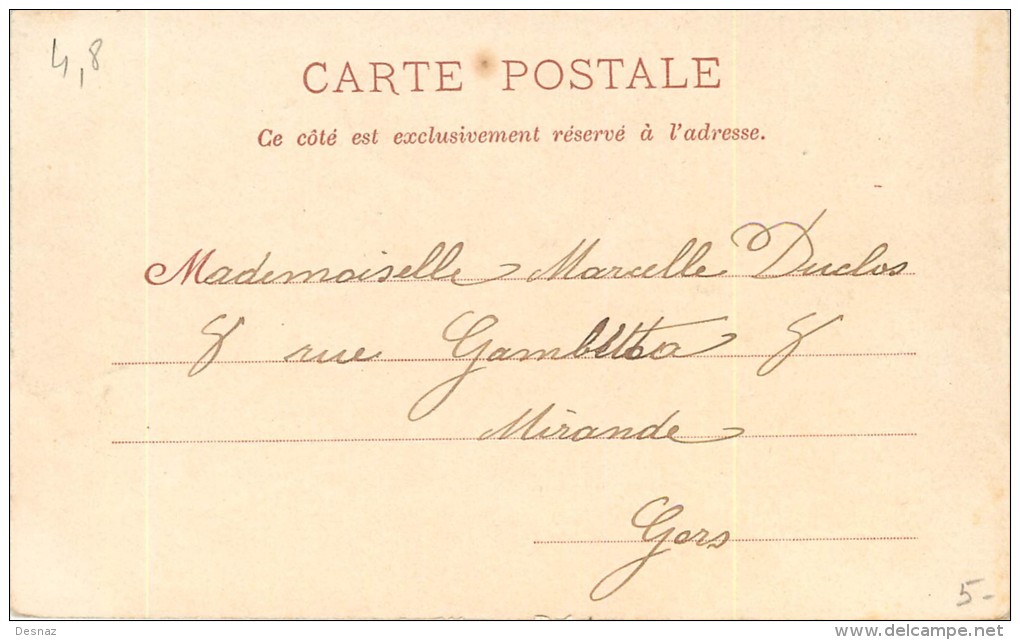 4,8
CARTE POSTALE
Ce côté est exclusivement réservé à l'adresse.
Mademoiselle Marcelle Duclos
rue Gambetta
Mirande
Gers
5-
Desnaz
delcampe.net